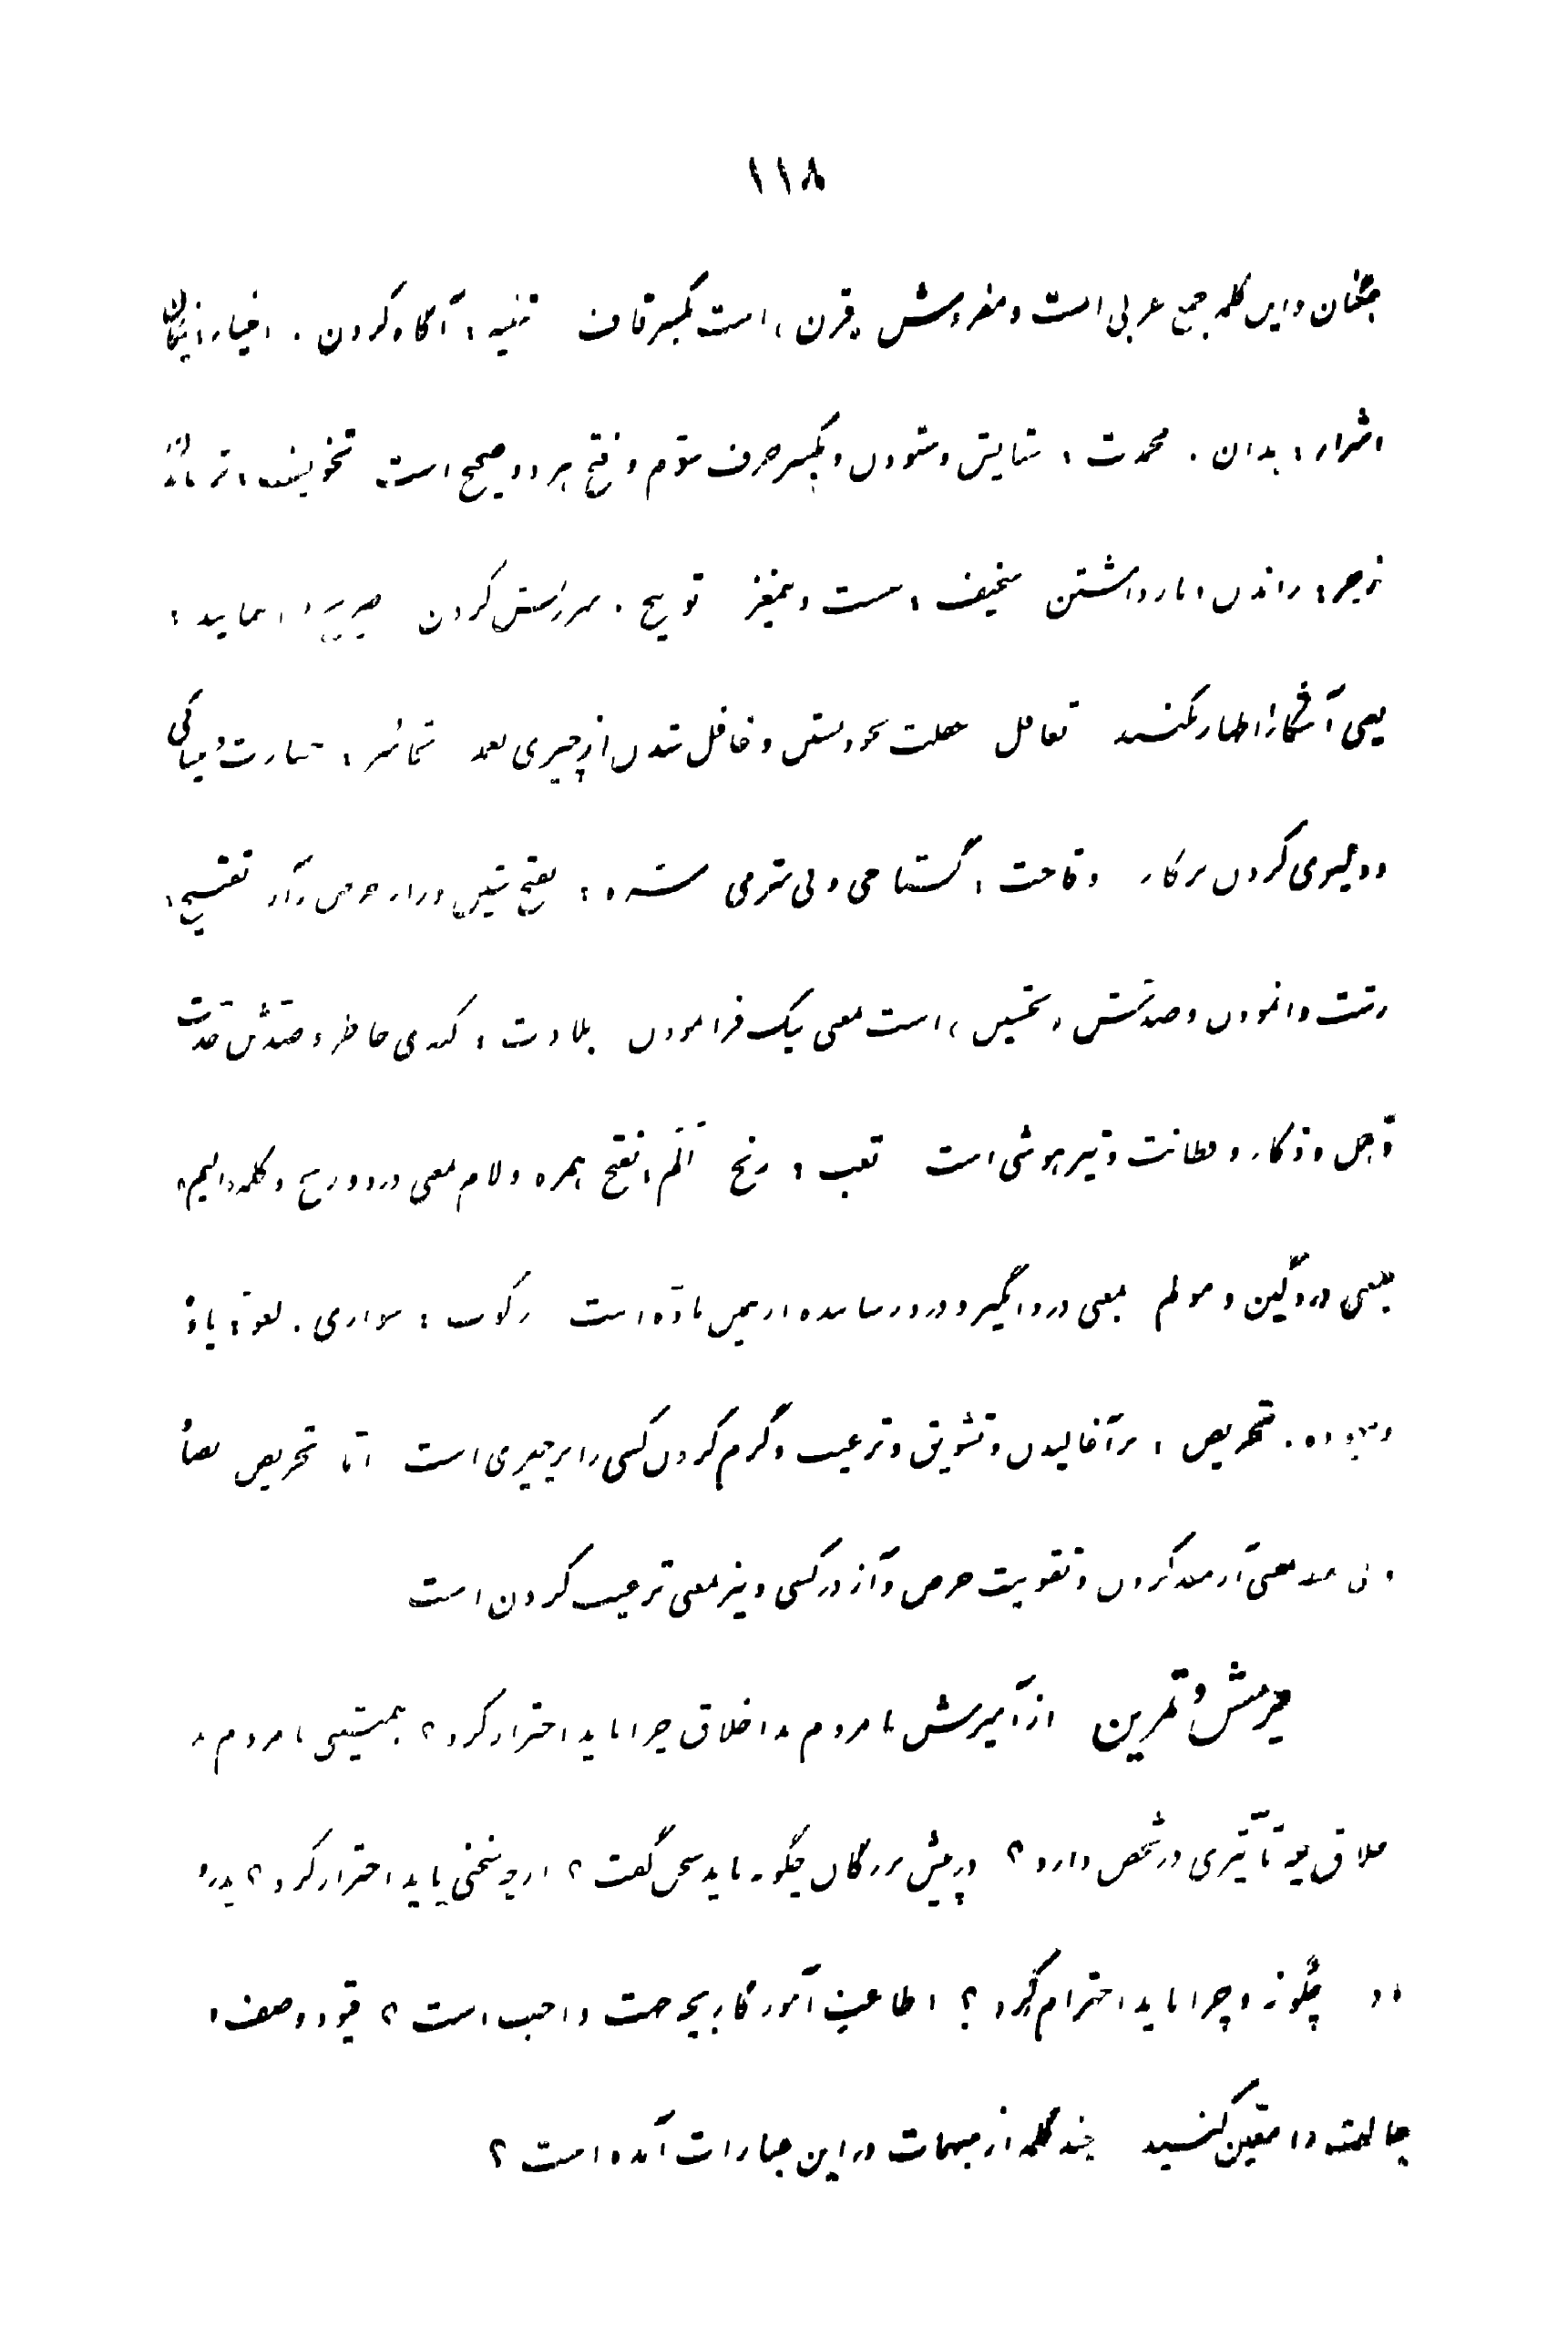 ۱۱۸
جنگیان و این کلمه جمع عربی است و مفردش «قرن» است بکسر قاف تنبیه : آگاه کردن . اخیار : نیکان
اشرار : بدان . محمدت : ستایش و ستودن و بکسر حرف سوّم و فتح هر دو صحیح است تخویف : ترساندن
زجر : راندن و بازداشتن سخیف : سست و بیمغز توبیخ . سرزنش کردن
یعنی آشکارا اظهار نکنند تغافل غفلت بخود بستن و غافل شدن از چیزی بعمد تجاسر : جسارت و بیباکی
و دلیری کردن بر کار وقاحت : گستاخی و بی شرمی شره : بفتح شین و راء حرص و آز تقبیح :
زشت وانمودن و ضدش «تحسین» است بمعنی نیک فرا نمودن بلادت : کندی خاطر و ضدش حدّت
ذهن و ذکاء و فطانت و تیزهوشی است تعب : رنج اَلَم : بفتح همزه و لام بمعنی درد و رنج و کلمه «الیم»
بمعنی دردگین و مولم بمعنی درد انگیز و درد رساننده از همین مادّه است رکوب : سواری . لغو : یاوه
و بیهوده . تحریض : برآغالیدن و تشویق و ترغیب و گرم کردن کسی را بر چیزی است امّا تحریص بصاد
بی نقطه بمعنی آزمند کردن و تقویت حرص و آز در کسی و نیز بمعنی ترغیب کردن است
پرسش و تمرین از آمیزش با مردم بد اخلاق چرا باید احتراز کرد ؟ همنشینی با مردم بد
اخلاق چه تأثیری در شخص دارد ؟ در پیش بزرگان چگونه باید سخن گفت ؟ از چه سخنی باید احتراز کرد ؟ پدر و
چگونه و چرا باید احترام کرد ؟ اطاعت آموزگار بچه جهت واجب است ؟ قیود وصف و
حالت را معیّن کنید چند کلمه از مبهمات در این عبارات آمده است ؟